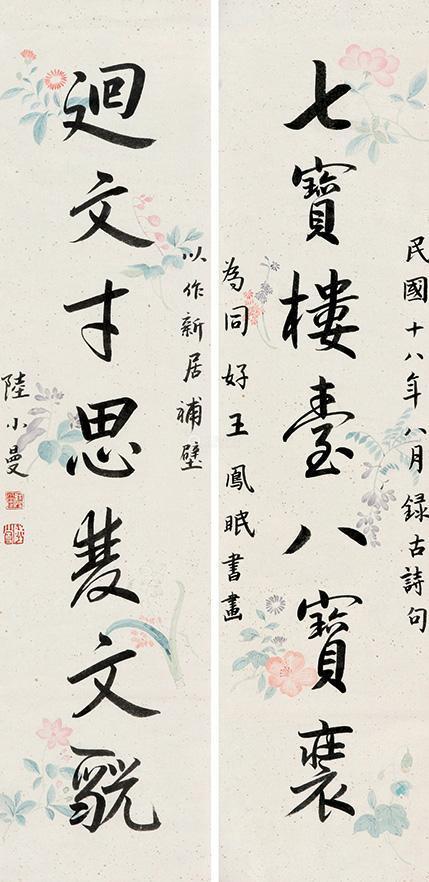 民國十八年八月録古詩句
七寶樓臺八寶裝
為同好王鳳眠書畫
以作新居補壁
迴文才思雙文貌
陸小曼